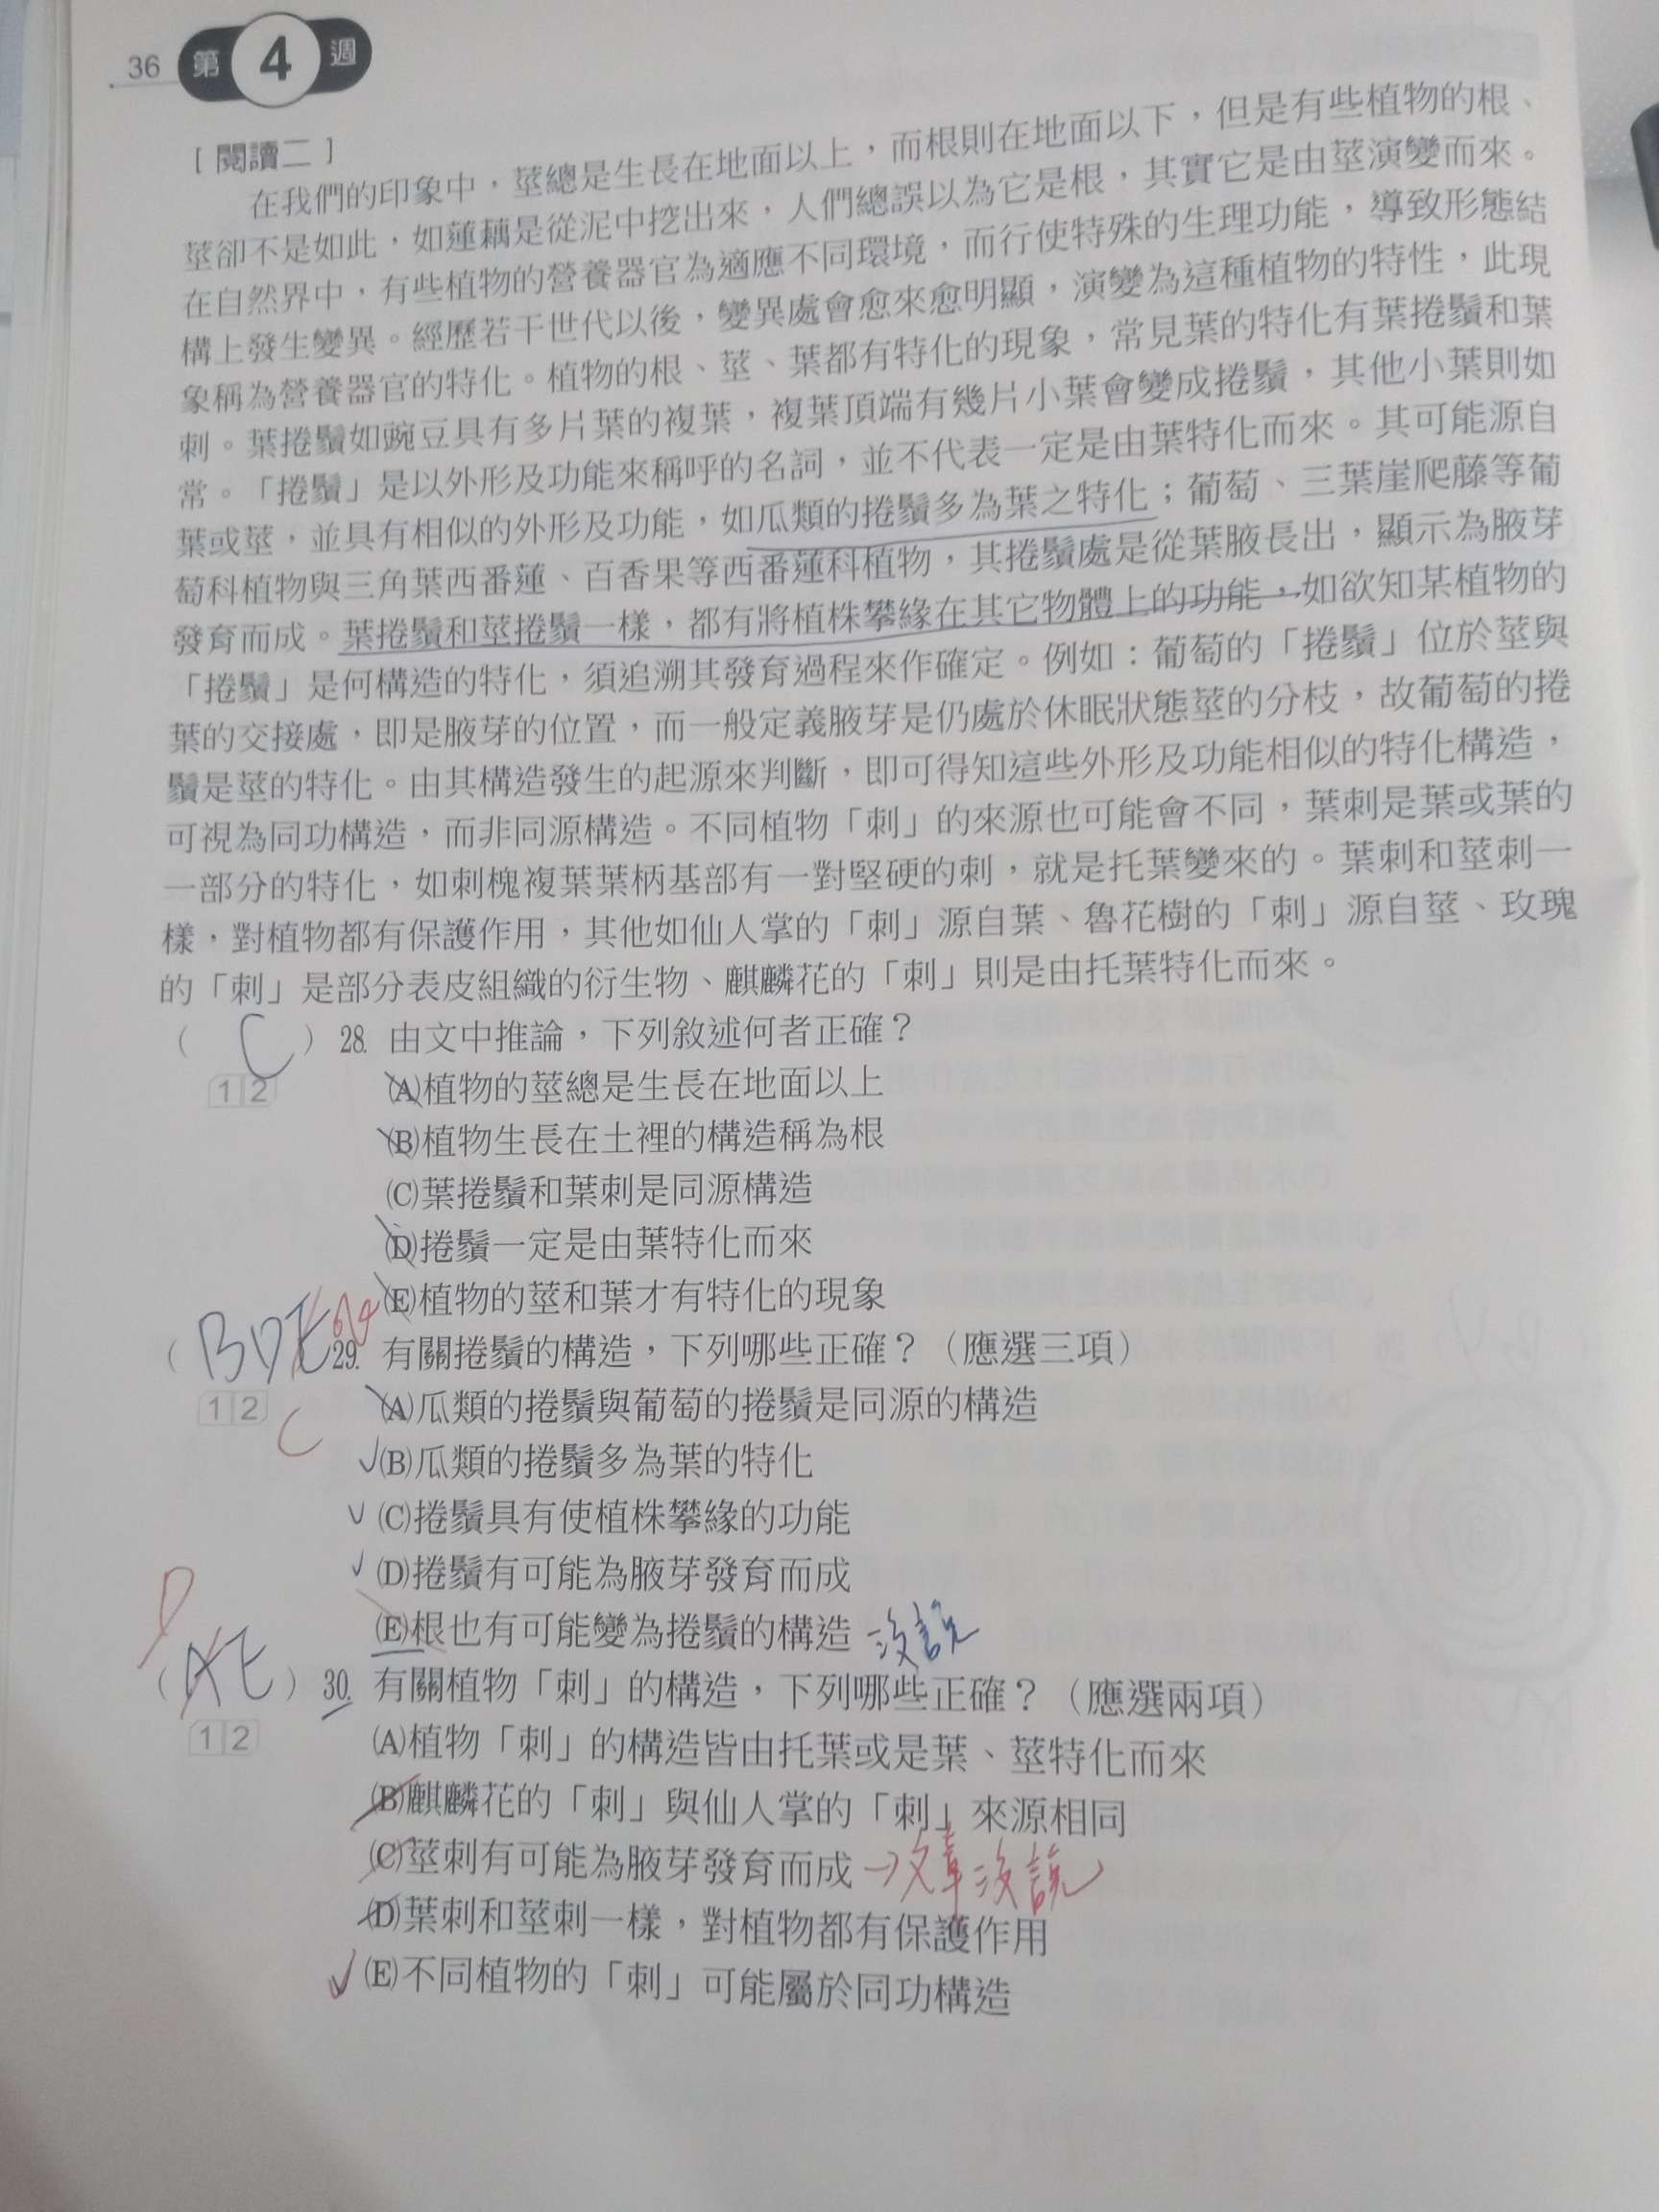 36 第 4 週
[閱讀二]
在我們的印象中，莖總是生長在地面以上，而根則在地面以下，但是有些植物的根、
莖卻不是如此，如蓮藕是從泥中挖出來，人們總誤以為它是根，其實它是由莖演變而來。
在自然界中，有些植物的營養器官為適應不同環境，而行使特殊的生理功能，導致形態結
構上發生變異。經歷若干世代以後，變異處會愈來愈明顯，演變為這種植物的特性，此現
象稱為營養器官的特化。植物的根、莖、葉都有特化的現象，常見葉的特化有葉捲鬚和葉
刺。葉捲鬚如豌豆具有多片葉的複葉，複葉頂端有幾片小葉會變成捲鬚，其他小葉則如
常。「捲鬚」是以外形及功能來稱呼的名詞，並不代表一定是由葉特化而來。其可能源自
葉或莖，並具有相似的外形及功能，如瓜類的捲鬚多為葉之特化；葡萄、三葉崖爬藤等葡
萄科植物與三角葉西番蓮、百香果等西番蓮科植物，其捲鬚處是從葉腋長出，顯示為腋芽
發育而成。葉捲鬚和莖捲鬚一樣，都有將植株攀緣在其它物體上的功能，如欲知某植物的
「捲鬚」是何構造的特化，須追溯其發育過程來作確定。例如：葡萄的「捲鬚」位於莖與
葉的交接處，即是腋芽的位置，而一般定義腋芽是仍處於休眠狀態莖的分枝，故葡萄的捲
鬚是莖的特化。由其構造發生的起源來判斷，即可得知這些外形及功能相似的特化構造，
可視為同功構造，而非同源構造。不同植物「刺」的來源也可能會不同，葉刺是葉或葉的
一部分的特化，如刺槐複葉葉柄基部有一對堅硬的刺，就是托葉變來的。葉刺和莖刺一
樣，對植物都有保護作用，其他如仙人掌的「刺」源自葉、魯花樹的「刺」源自莖、玫瑰
的「刺」是部分表皮組織的衍生物、麒麟花的「刺」則是由托葉特化而來。
( C ) 28. 由文中推論，下列敘述何者正確？
1 2
(A)植物的莖總是生長在地面以上
(B)植物生長在土裡的構造稱為根
(C)葉捲鬚和葉刺是同源構造
(D)捲鬚一定是由葉特化而來
(E)植物的莖和葉才有特化的現象
( BDE 29. 有關捲鬚的構造，下列哪些正確？（應選三項）
1 2
C
(A)瓜類的捲鬚與葡萄的捲鬚是同源的構造
(B)瓜類的捲鬚多為葉的特化
(C)捲鬚具有使植株攀緣的功能
(D)捲鬚有可能為腋芽發育而成
(E)根也有可能變為捲鬚的構造 沒說
( AE ) 30. 有關植物「刺」的構造，下列哪些正確？（應選兩項）
1 2
(A)植物「刺」的構造皆由托葉或是葉、莖特化而來
(B)麒麟花的「刺」與仙人掌的「刺」來源相同
(C)莖刺有可能為腋芽發育而成 →文章沒說
(D)葉刺和莖刺一樣，對植物都有保護作用
(E)不同植物的「刺」可能屬於同功構造